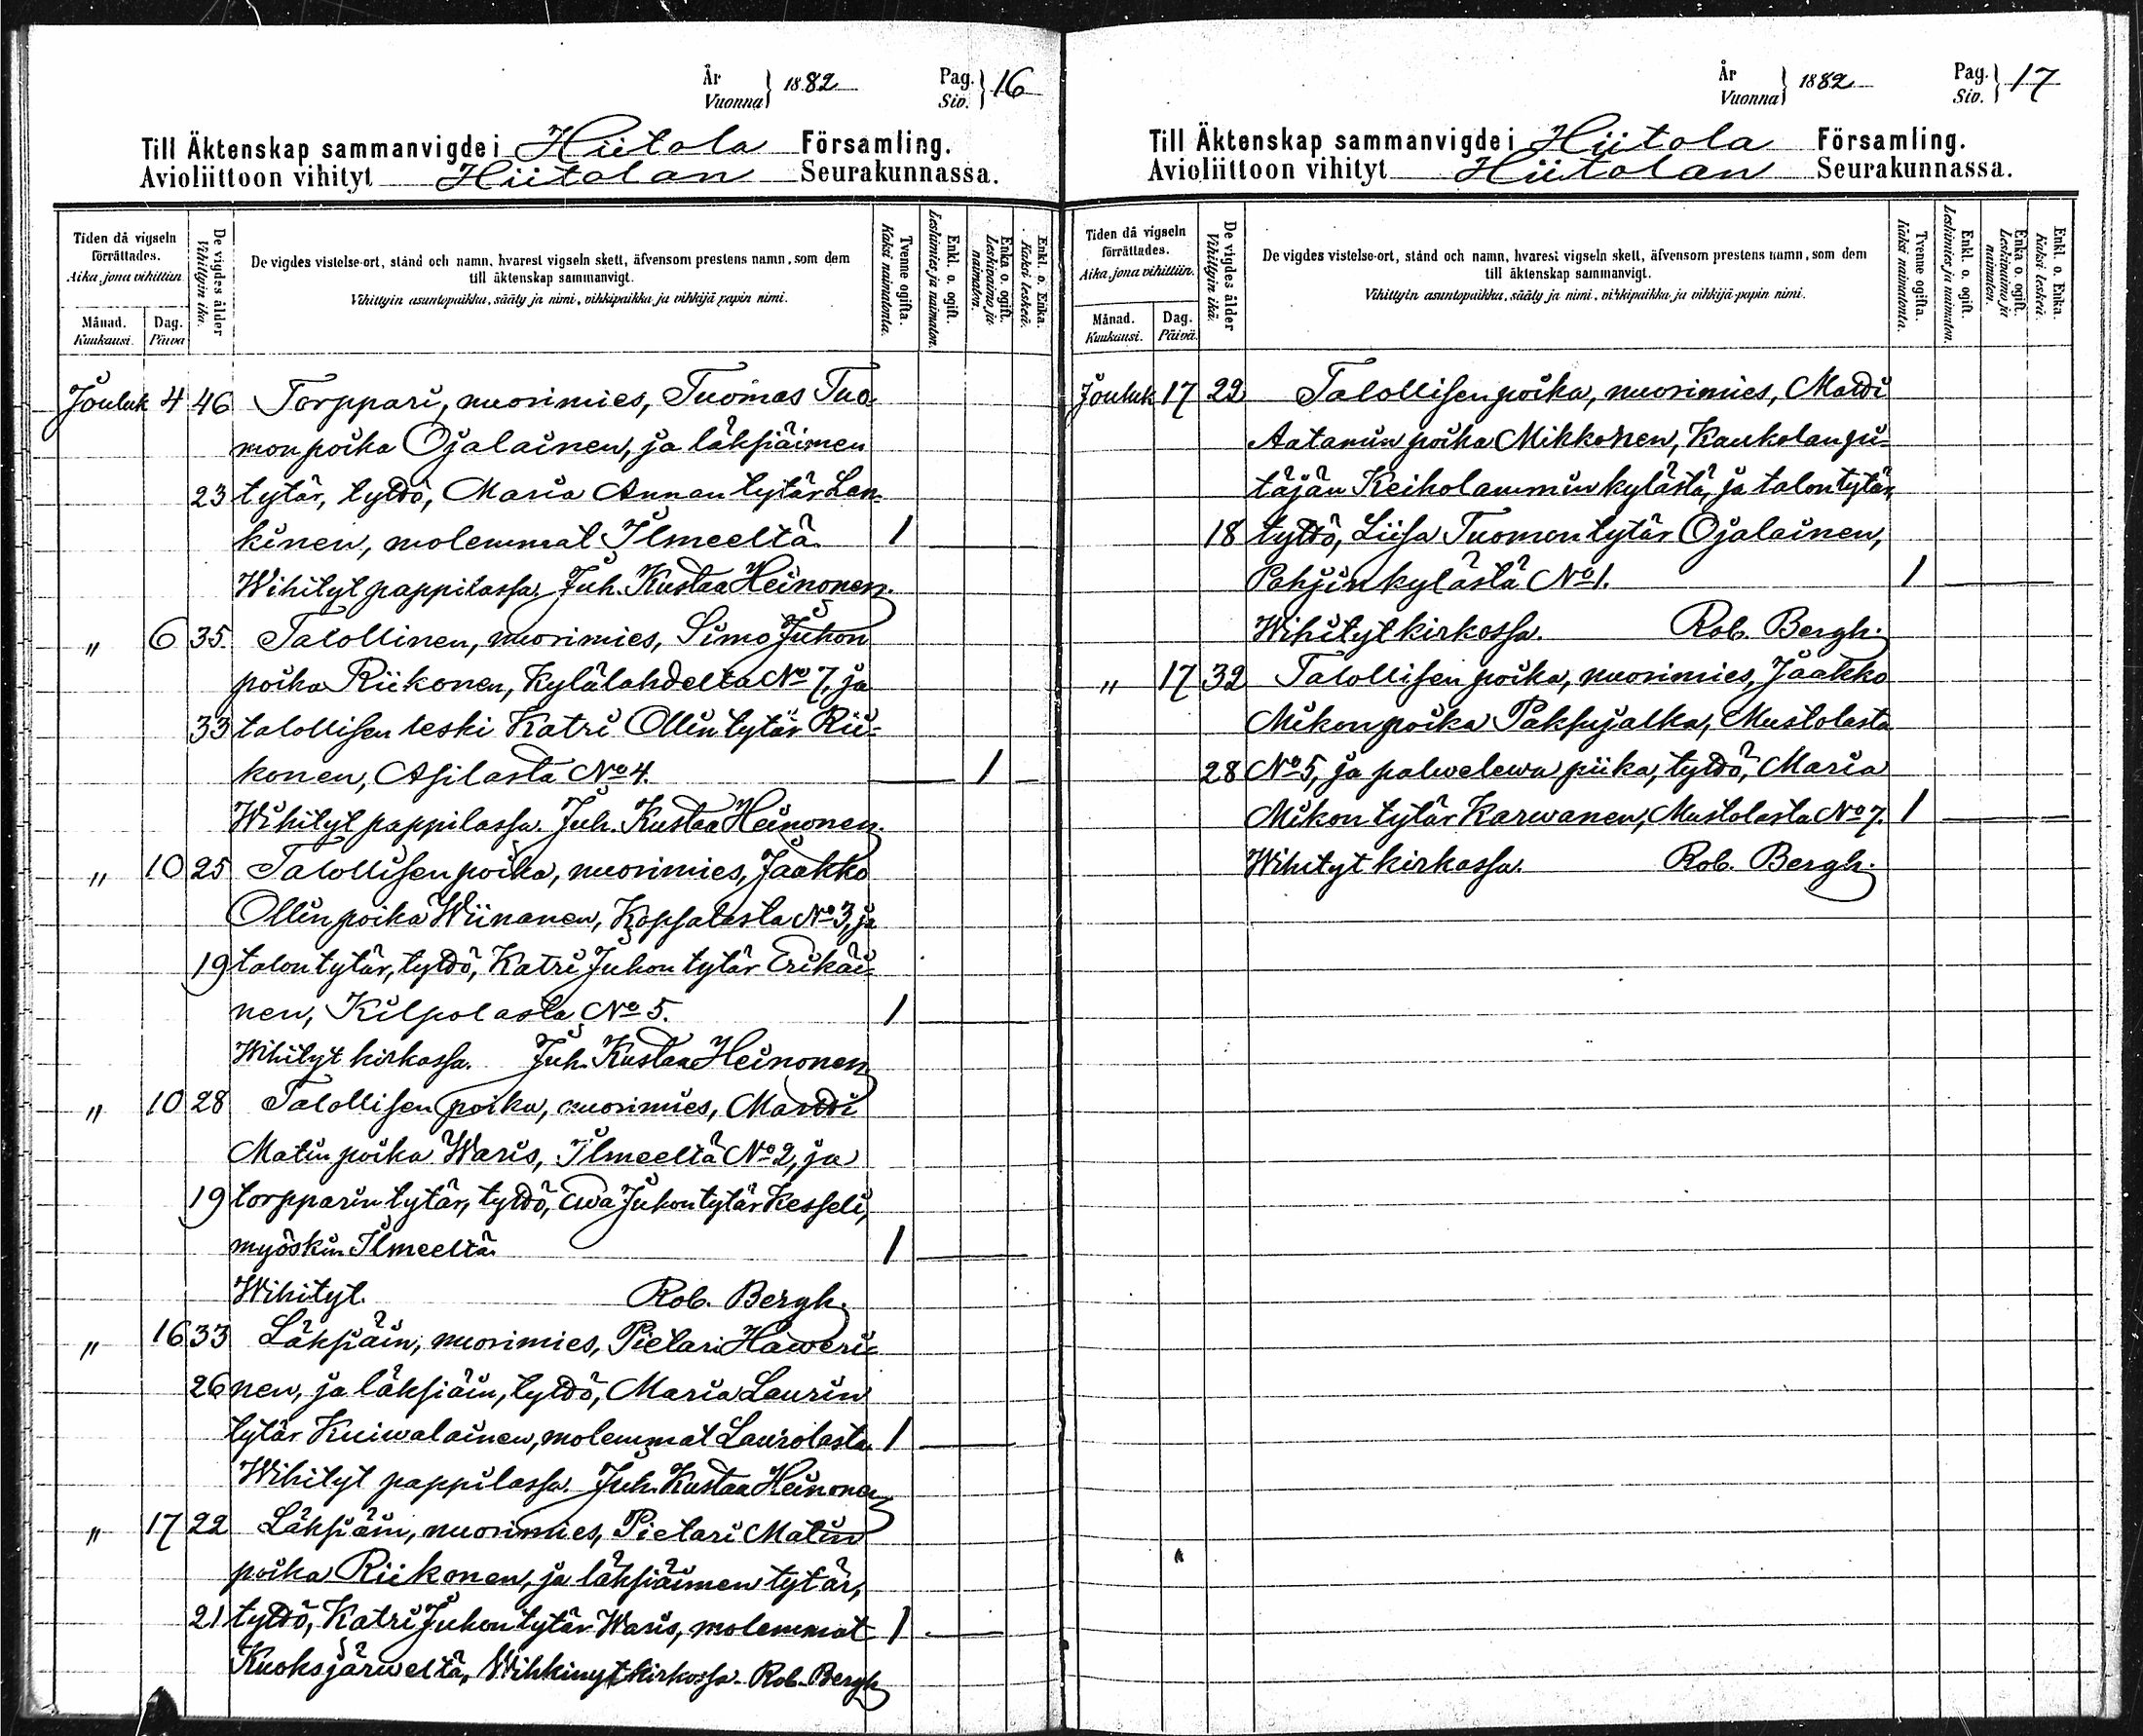 År
Vuonna } 1882 Pag.
Siv. } 16
Till Äktenskap sammanvigde i Hiitola Församling.
Avioliittoon vihityt Hiitolan Seurakunnassa.
Tiden då vigseln förrättades.
Aika, jona vihittiin.
Månad.
Kuukausi.
Dag.
Päivä
De vigdes ålder
Vihittyin ikä.
De vigdes vistelse-ort, stånd och namn, hvarest vigseln skett, äfvensom prestens namn, som dem
till äktenskap sammanvigt.
Vihittyin asuntopaikka, sääty ja nimi, vihkipaikka ja vihkijä papin nimi.
Tvenne ogifta.
Kaksi naimatonta.
Enkl. o. ogift.
Leskimies ja naimaton.
Enka o. ogift.
Leskivaimo ja naimaton.
Enkl. o. Enka.
Kaksi leskeä.
Jouluk 4 46 Torppari, nuorimies, Tuomas Tuo-
mon poika Ojalainen, ja läksiäimen
23 tytär, tyttö, Maria Annan tytär Lan-
kinen, molemmat Ilmeeltä. 1
Wihityt pappilassa. Juh. Kustaa Heinonen.
" 6 35. Talollinen, nuorimies, Simo Juhon
poika Riikonen, Kylälahdelta No 7, ja
33 talollisen leski Katri Ollin tytär Rii-
konen, Asilasta No 4. 1
Wihityt pappilassa. Juh. Kustaa Heinonen.
" 10 25 Talollisen poika, nuorimies, Jaakko
Ollin poika Wiinanen, Kopsalasta No 3, ja
19 talon tytär, tyttö, Katri Juhon tytär Erikäi-
nen, Kilpolasta No 5. 1
Wihityt kirkossa. Juh. Kustaa Heinonen
" 10 28 Talollisen poika, nuorimies, Martti
Matin poika Waris, Ilmeeltä No 2, ja
19 torpparin tytär, tyttö, Ewa Juhon tytär Kesseli,
myöskin Ilmeeltä 1
Wihityt. Rob. Bergh.
" 16 33 Läksiäin, nuorimies, Pietari Haweri-
26 nen, ja läksiäin, tyttö, Maria Laurin
tytär Kuiwalainen, molemmat Laurolasta 1
Wihityt pappilassa. Juh. Kustaa Heinonen
" 17 22 Läksiäin, nuorimies, Pietari Matin
poika Riikonen, ja läksiäimen tytär,
21 tyttö, Katri Juhon tytär Waris, molemmat 1
Kuoksjärweltä, Wihkinyt kirkossa. Rob. Bergh
År
Vuonna } 1882 Pag.
Siv. } 17
Till Äktenskap sammanvigde i Hiitola Församling.
Avioliittoon vihityt Hiitolan Seurakunnassa.
Tiden då vigseln förrättades.
Aika, jona vihittiin.
Månad.
Kuukausi.
Dag.
Päivä.
De vigdes ålder
Vihittyin ikä.
De vigdes vistelse-ort, stånd och namn, hvarest vigseln skett, äfvensom prestens namn, som dem
till äktenskap sammanvigt.
Vihittyin asuntopaikka, sääty ja nimi, vihkipaikka ja vihkijä papin nimi.
Tvenne ogifta.
Kaksi naimatonta.
Enkl. o. ogift.
Leskimies ja naimaton.
Enka o. ogift.
Leskivaimo ja naimaton.
Enkl. o. Enka.
Kaksi leskeä.
Jouluk 17 22 Talollisen poika, nuorimies, Matti
Aatamin poika Mikkonen, Kaukolan pi-
täjän Keiholammin kylästä, ja talontytär,
18 tyttö, Liisa Tuomon tytär Ojalainen,
Pohjin kylästä No 1. 1
Wihityt kirkossa. Rob. Bergh.
" 17 32 Talollisen poika, nuorimies, Jaakko
Mikon poika Paksujalka, Mustolasta
28 No 5, ja palwelewa piika, tyttö, Maria
Mikon tytär Karwanen, Mustolasta No 7. 1
Wihityt kirkossa. Rob. Bergh.